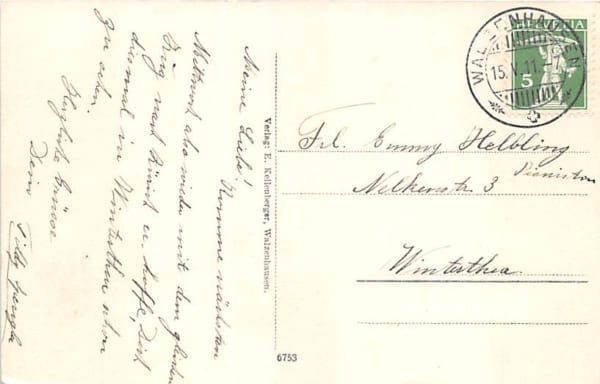 Meine Liebe! Komme nächsten
Mittwoch also wieder mit dem gleichen
Zug nach Zürich u. hoffe, Dich
diesmal in Winterthur schon
zu sehen
Herzliche Grüsse
Dein
Verlag: E. Kellenberger, Walzenhausen.
6753
HELVETIA
5
WALZENHAUSEN
15.V.11.-7
Frl. Emmy Helbling
Pianistin
Nelkenstr. 3
Winterthur